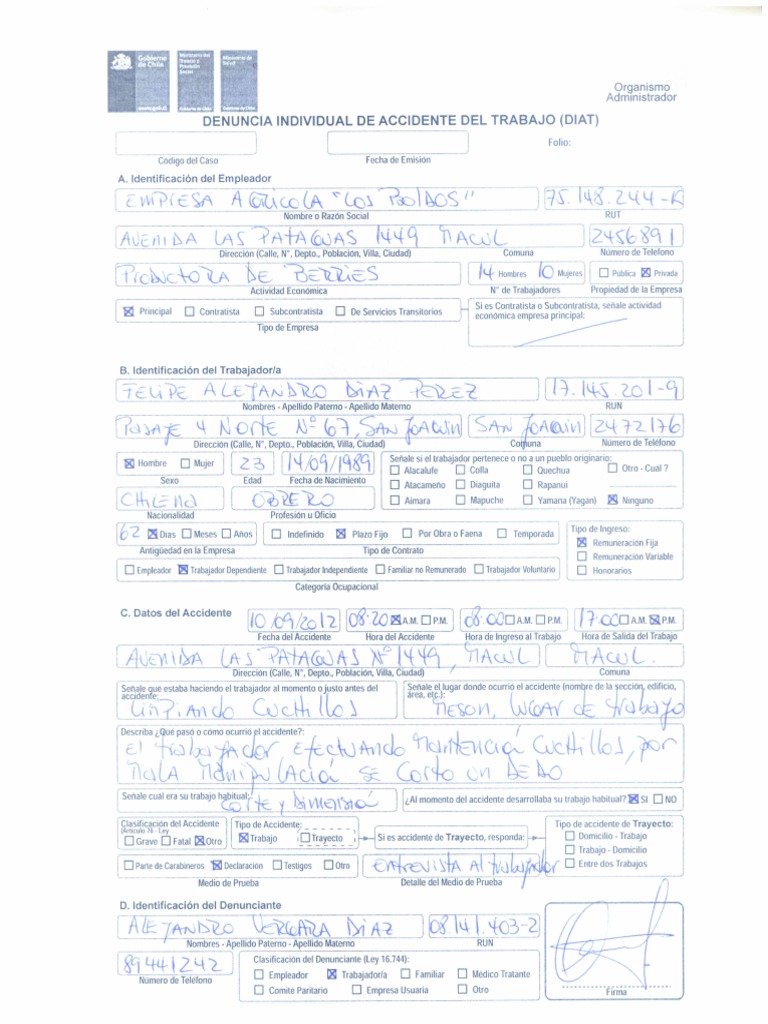 Gobierno de Chile
www.gob.cl
Ministerio del Trabajo y Previsión Social
Gobierno de Chile
Ministerio de Salud
Gobierno de Chile
Organismo Administrador
DENUNCIA INDIVIDUAL DE ACCIDENTE DEL TRABAJO (DIAT)
Folio:
Codigo del Caso Fecha de Emisión
A. Identificación del Empleador
EMPRESA AGRICOLA "LOS BOLDOS" 75.148.244-K
Nombre o Razón Social RUT
AVENIDA LAS PATAGUAS 1449 MACUL 2456891
Dirección (Calle, N°, Depto., Población, Villa, Ciudad) Comuna Número de Teléfono
PRODUCTORA DE BERRIES 14 Hombres 10 Mujeres Publica Privada
Actividad Económica N° de Trabajadores Propiedad de la Empresa
Principal Contratista Subcontratista De Servicios Transitorios
Tipo de Empresa
Si es Contratista o Subcontratista, señale actividad
económica empresa principal:
B. Identificación del Trabajador/a
FELIPE ALEJANDRO DIAZ PEREZ 17.145.201-9
Nombres - Apellido Paterno - Apellido Materno RUN
PASAJE 4 NORTE Nº 67, SAN JOAQUIN SAN JOAQUIN 2472176
Dirección (Calle, N°, Depto., Población, Villa, Ciudad) Comuna Número de Teléfono
Hombre Mujer 23 14/09/1989
Sexo Edad Fecha de Nacimiento
Señale si el trabajador pertenece o no a un pueblo originario:
Alacalufe Colla Quechua Otro - Cual ?
Atacameño Diaguita Rapanui
Aimara Mapuche Yamana (Yagan) Ninguno
CHILENO OBRERO
Nacionalidad Profesión u Oficio
62 Dias Meses Años Indefinido Plazo Fijo Por Obra o Faena Temporada
Antigüedad en la Empresa Tipo de Contrato
Tipo de Ingreso:
Remuneración Fija
Remuneración Variable
Honorarios
Empleador Trabajador Dependiente Trabajador Independiente Familiar no Remunerado Trabajador Voluntario
Categoría Ocupacional
C. Datos del Accidente 10/09/2012 08:20 A.M. P.M. 08:00 A.M. P.M. 17:00 A.M. P.M.
Fecha del Accidente Hora del Accidente Hora de Ingreso al Trabajo Hora de Salida del Trabajo
AVENIDA LAS PATAGUAS Nº 1449, MACUL MACUL.
Dirección (Calle, N°, Depto., Población, Villa, Ciudad) Comuna
Señale que estaba haciendo el trabajador al momento o justo antes del
accidente:
Limpiando Cuchillos
Señale el lugar donde ocurrio el accidente (nombre de la sección, edificio,
área, etc.):
MESON, LUGAR de trabajo
Describa ¿Qué pasó o cómo ocurrio el accidente?:
El trabajador, efectuando mantencia Cuchillos, por
mala manipulacia se corto un DEDO
Señale cual era su trabajo habitual:
Corte y Dimensia
¿Al momento del accidente desarrollaba su trabajo habitual? SI NO
Clasificación del Accidente
(Artículo 76 - Ley
Grave Fatal Otro
Tipo de Accidente:
Trabajo Trayecto
Si es accidente de Trayecto, responda:
Tipo de accidente de Trayecto:
Domicilio - Trabajo
Trabajo - Domicilio
Entre dos Trabajos
Parte de Carabineros Declaración Testigos Otro
Medio de Prueba
ENTREVISTA Al trabajador
Detalle del Medio de Prueba
D. Identificación del Denunciante
ALEJANDRO VERGARA DIAZ 08.141.403-2
Nombres - Apellido Paterno - Apellido Materno RUN
89441242
Número de Teléfono
Clasificación del Denunciante (Ley 16.744):
Empleador Trabajador/a Familiar Médico Tratante
Comite Paritario Empresa Usuaria Otro
Firma